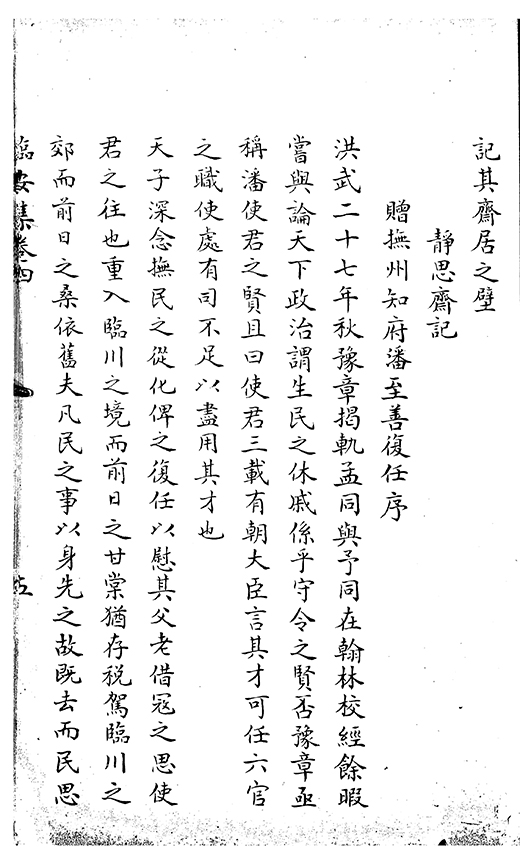 記其齋居之壁
靜思齋記
贈撫州知府潘至善復任序
洪武二十七年秋豫章揭軌孟同與予同在翰林校經餘暇
嘗與論天下政治謂生民之休戚係乎守令之賢否豫章亟
稱潘使君之賢且曰使君三載有朝大臣言其才可任六官
之職使處有司不足以盡用其才也
天子深念撫民之從化俾之復任以慰其父老借寇之思使
君之往也重入臨川之境而前日之甘棠猶存稅駕臨川之
郊而前日之桑依舊夫凡民之事以身先之故既去而民思
臨安集卷四
五